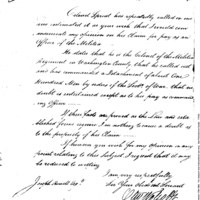 Colonel Sproat has repeatedly called on me
and intimated it as your wish that I would com-
municate my opinion on his Claim for pay as an
Officer of the Militia
He states that he is the Colonel of the Militia
Regiment in Washington County, that he called out
and has commanded a Detachment of about One
Hundred Men by orders of the Secy of War that no
doubt is entertained except as to his pay as command-
ing Officer
If these Facts are proved as the Law and esta-
blished Forms require I see nothing to cause a doubt as to
the propriety of his Claim
If however you wish for my opinion in any
point relating to this Subject I request that it may
be reduced to writing
I am, very respectfully
Sir Your Obedient Servant
Joseph Howell Esqr